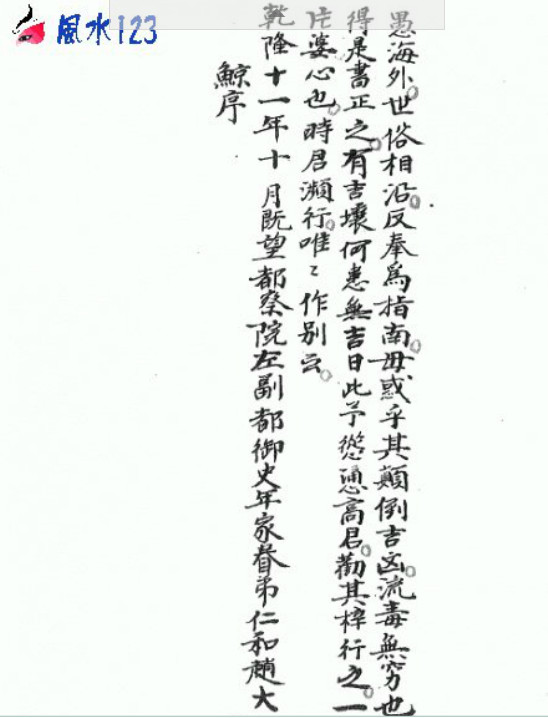 風水123
愚海外。世俗相沿。反奉為指南。毋或乎其顛倒吉凶。流毒無窮也
得是書正之。有吉壤何患無吉日此予慫恿高君。勸其梓行之。一
片婆心也。時君瀕行。唯〻作别云。
乾隆十一年十月既望都察院左副都御史年家眷弟仁和趙大
鯨序